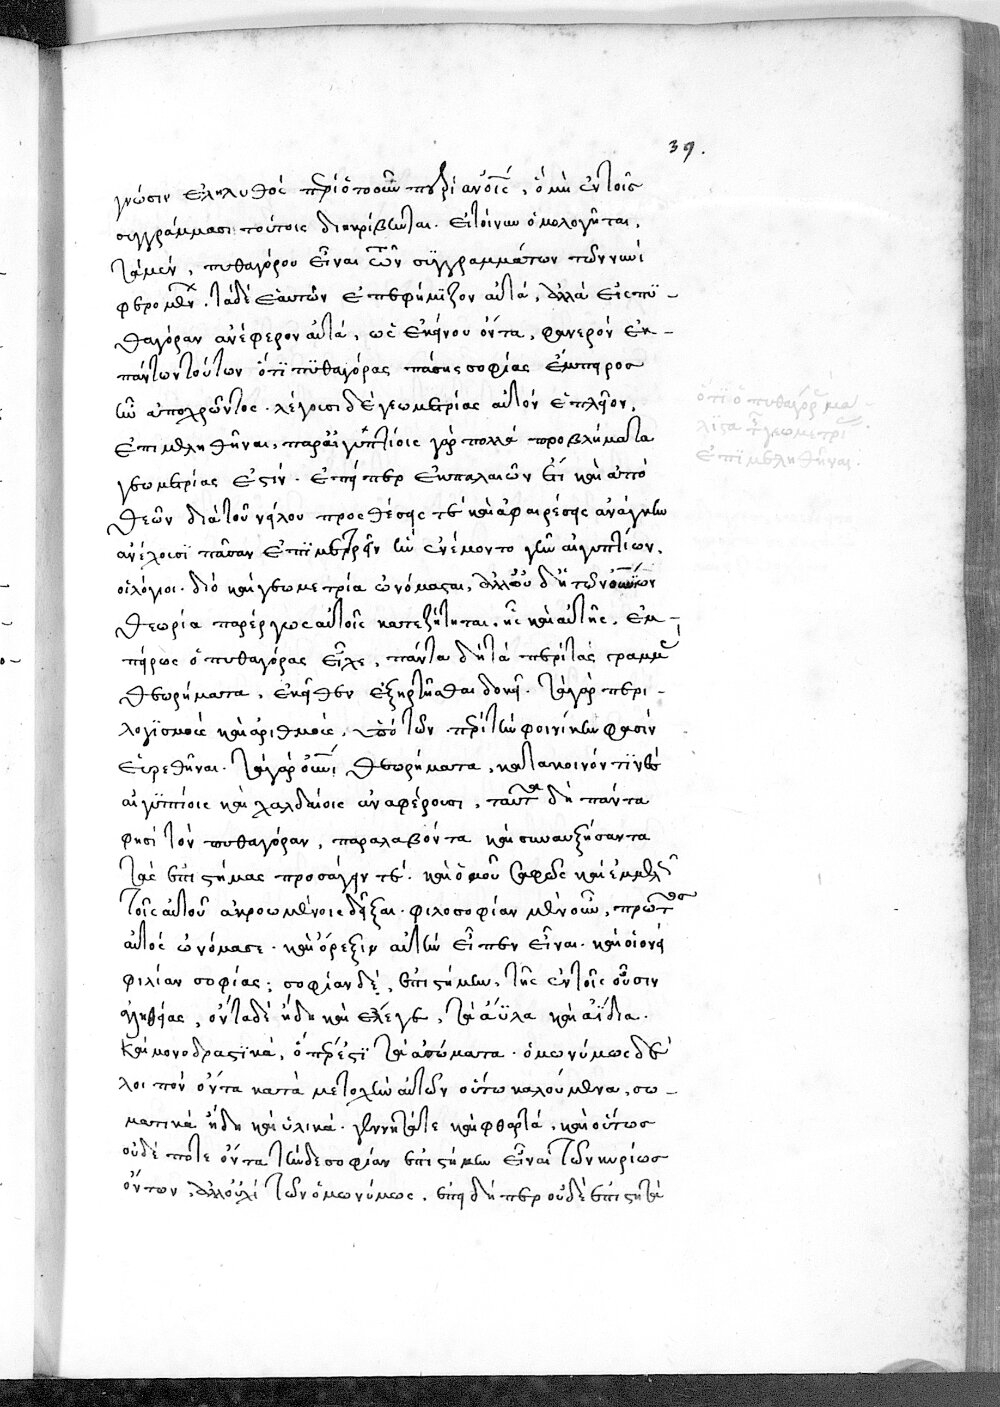 39.
γνώσιν ἐληλυθός περὶ ὁποσοῦν πραγμάτων ἀνθρώποις, ὃ μὴ ἐν τοῖς
συγγράμμασι τούτοις διηκρίβωται. εἰ τοίνυν ὁμολογεῖται,
τὰ μέν, πυθαγόρου εἶναι τῶν συγγραμμάτων τῶν νυνὶ
φερομένων. τὰ δὲ
ἑαυτῶν ἐπεφήμϊζον αὐτά, ἀλλὰ εἰς πϋ-
θαγόραν ἀνέφερον αὐτά, ὡς ἐκείνου ὄντα, φανερὸν ἐκ
πάντων τούτων ὅτϊ πϋθαγόρας πάσης σοφίας ἔμπειρος
ἦν ἀποχρώντως. λέγουσι δὲ γεωμετρίας αὐτὸν ἐπλέον,
ἐπιμεληθῆναι, παρ' αἰγϋπτίοις γὰρ πολλὰ προβλήματα
γεωμετρίας ἐστίν. ἐπείπερ ἐκ παλαιῶν ἔτι καὶ ἀπὸ
θεῶν διὰ τοῦ νείλου προσθέσεις τὲ καὶ ἀφαιρέσεις ἀνάγκην
ἀνέχουσϊ πᾶσαν ἐπϊμετρεῖν ἣν ἐνέμοντο γῆν αἰγυπτίων,
οἱ λόγιοι. διὸ καὶ γεωμετρία ὠνόμασται, ἀλλ' οὐδ' ἡ τῶν οὐρανίων
θεωρία παρέργως αὐτοῖς κατεζήτηται. ἧς καὶ αὐτῆς, ἐμ-
πείρως ὁ πυθαγόρας εἶχε, πάντα δὴ τὰ περὶ τὰς γραμμὰς
θεωρήματα, ἐκεῖθεν ἐξηρτῆσθαι δοκεῖ. τὰ γὰρ περι-
λογϊσμοὺς καὶ ἀριθμοὺς, ὑπὸ τῶν περὶ τὴν φοινίκην φασὶν
εὑρεθῆναι. τὰ γὰρ οὐράνια θεωρήματα, κατὰ κοινόν τϊνες
αἰγϋπτίοις καὶ χαλδαίοις ἀναφέρουσι, ταῦτα δὴ πάντα
φησὶ τὸν πυθαγόραν, παραλαβόντα καὶ συναυξήσαντα
τὰς ἐπιστήμας προσάγειν τέ. καὶ ὁμοῦ σαφῶς καὶ ἐμμελῶς
τοῖς αὐτοῦ ἀκροωμένοις δεῖξαι. φιλοσοφίαν μὲν οὖν, πρῶτος
αὐτὸς ὠνόμασε. καὶ ὄρεξιν αὐτὴν εἶπεν εἶναι. καὶ οἱονεὶ
φιλίαν σοφίας; σοφίαν δέ, ἐπιστήμην, τῆς ἐν τοῖς οὖσιν
ἀληθείας, ὄντα δὲ ᾔδη καὶ ἔλεγε, τὰ ἄϋλα καὶ ἀΐδια.
καὶ μόνο δραστϊκά, ὅπερ ἐστϊ τὰ ἀσώματα. ὁμωνύμως δὲ
λοιπὸν ὄντα κατὰ μετοχὴν αὐτῶν οὕτω καλούμενα, σω-
ματικὰ ᾔδη καὶ ὑλικά. γεννητά τε καὶ φθαρτά, καὶ οὕτως
οὐδέποτε ὄντα τὴν δὲ σοφίαν ἐπιστήμην εἶναι τῶν κυρίως
ὄντων, ἀλλ' οὐχὶ τῶν ὁμωνύμως, ἐπειδήπερ οὐδὲ ἐπιστητὰ
ὅτι ὁ πυθαγόρας μα
λϊστα τῆς γεωμετρίας
ἐπϊμεληθῆναι.